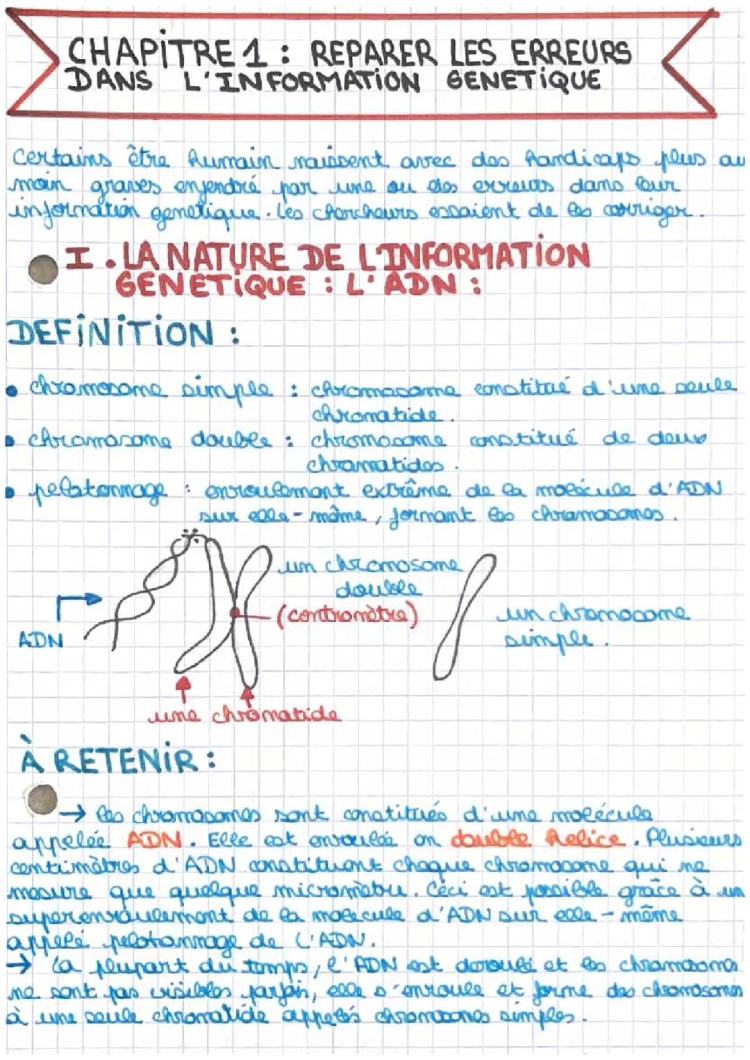 CHAPITRE 1 : REPARER LES ERREURS
DANS L'INFORMATION GENETIQUE
Certains être humain naissent avec des handicaps plus ou
moin graves enjendré par une ou des erreurs dans leur
information genetique. les chercheurs essaient de les corriger.
I. LA NATURE DE L'INFORMATION
GENETIQUE : L'ADN :
DEFINITION :
• chromosome simple : chromosome constitué d'une seule
chromatide.
• chromosome double : chromosome constitué de deux
chromatides.
• pelotonnage : enroulement extrême de la molécule d'ADN
sur elle-même, formant les chromosomes.
un chromosome
double
(centromètre)
un chromosome
simple.
ADN
une chromatide
À RETENIR :
→ les chromosomes sont constitués d'une molécule
appelée ADN. Elle est enroulée en double helice. Plusieurs
centimètres d'ADN constituent chaque chromosome qui ne
mesure que quelque micromètre. Ceci est possible grâce à un
superenroulement de la molécule d'ADN sur elle-même
appelé pelotonnage de l'ADN.
→ la plupart du temps, l'ADN est deroulé et les chromosomes
ne sont pas visibles parfois, elle s'enroule et forme des chromosomes
à une seule chromatide appelés chromosomes simples.